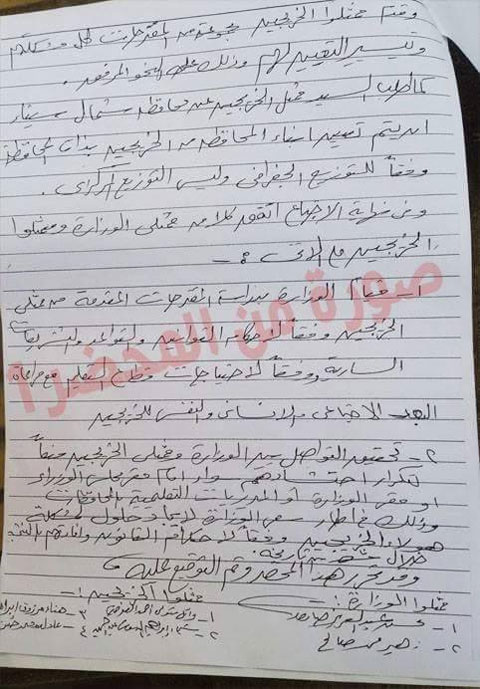 وقدم ممثلوا الخريجين مجموعة من المقترحات لحل مشكلتهم
وتيسير التعيين لهم وذلك على النحو المرفق.
كما طلب السيد ممثل الخريجين عن محافظة شمال سيناء
ان يتم تعيين ابناء المحافظة من الخريجين بذات المحافظة
وفقاً للتوزيع الجغرافى وليس التوزيع المركزى.
وفى نهاية الاجتماع اتفق كلا من ممثلى الوزارة وممثلوا
الخريجين على الاتى :-
صورة من المحضر
١- قيام الوزارة بدراسة المقترحات المقدمة من ممثلى
الخريجين وفقاً لاحكام القوانين والقواعد والتشريعات
السارية ووفقاً لاحتياجات قطاع التعليم مع مراعاة
البعد الاجتماعى والانسانى والنفسى للخريجين
٢- تحقيق التواصل بين الوزارة وممثلى الخريجين منعاً
لتكرار احتشادهم سواء امام مقر مجلس الوزراء
او مقر الوزارة أو المديريات التعليمية بالمحافظات
وذلك فى اطار سعى الوزارة لايجاد حلول لمشكلة
هؤلاء الخريجين وفقاً لاحكام القانون وافادتهم
خلال
وقد تحرر هذا المحضر وتم التوقيع عليه
ممثلوا الوزارة :-
١- عبد العزيز
٢- زهير محمد صالح
ممثلوا الخريجين :-
١- وائل احمد
٢- ابراهيم
٣- هناء مرزوق
٤- عادل